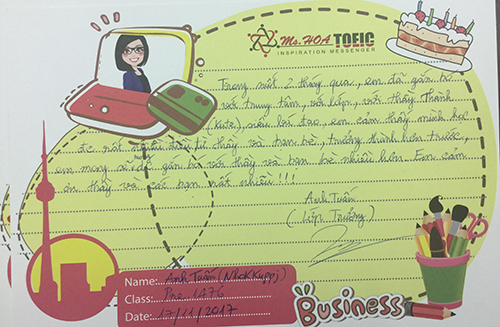 Ms.HOA TOEIC
INSPIRATION MESSENGER
Trong suốt 2 tháng qua, em đã gắn bó
với trung tâm, với lớp, với thầy Thành
(kute), sau bí tạo, em cảm thấy mình học
đc rất nhiều điều từ thầy và bạn bè, trưởng thành hơn trước,
em mong sẽ đc gắn bó với thầy và bạn bè nhiều hơn. Em cảm
ơn thầy và các bạn rất nhiều!!!
Anh Tuấn
(Lớp Trưởng)
Name: Anh Tuấn
Class: Pre
Date: 17/11/2017
Business